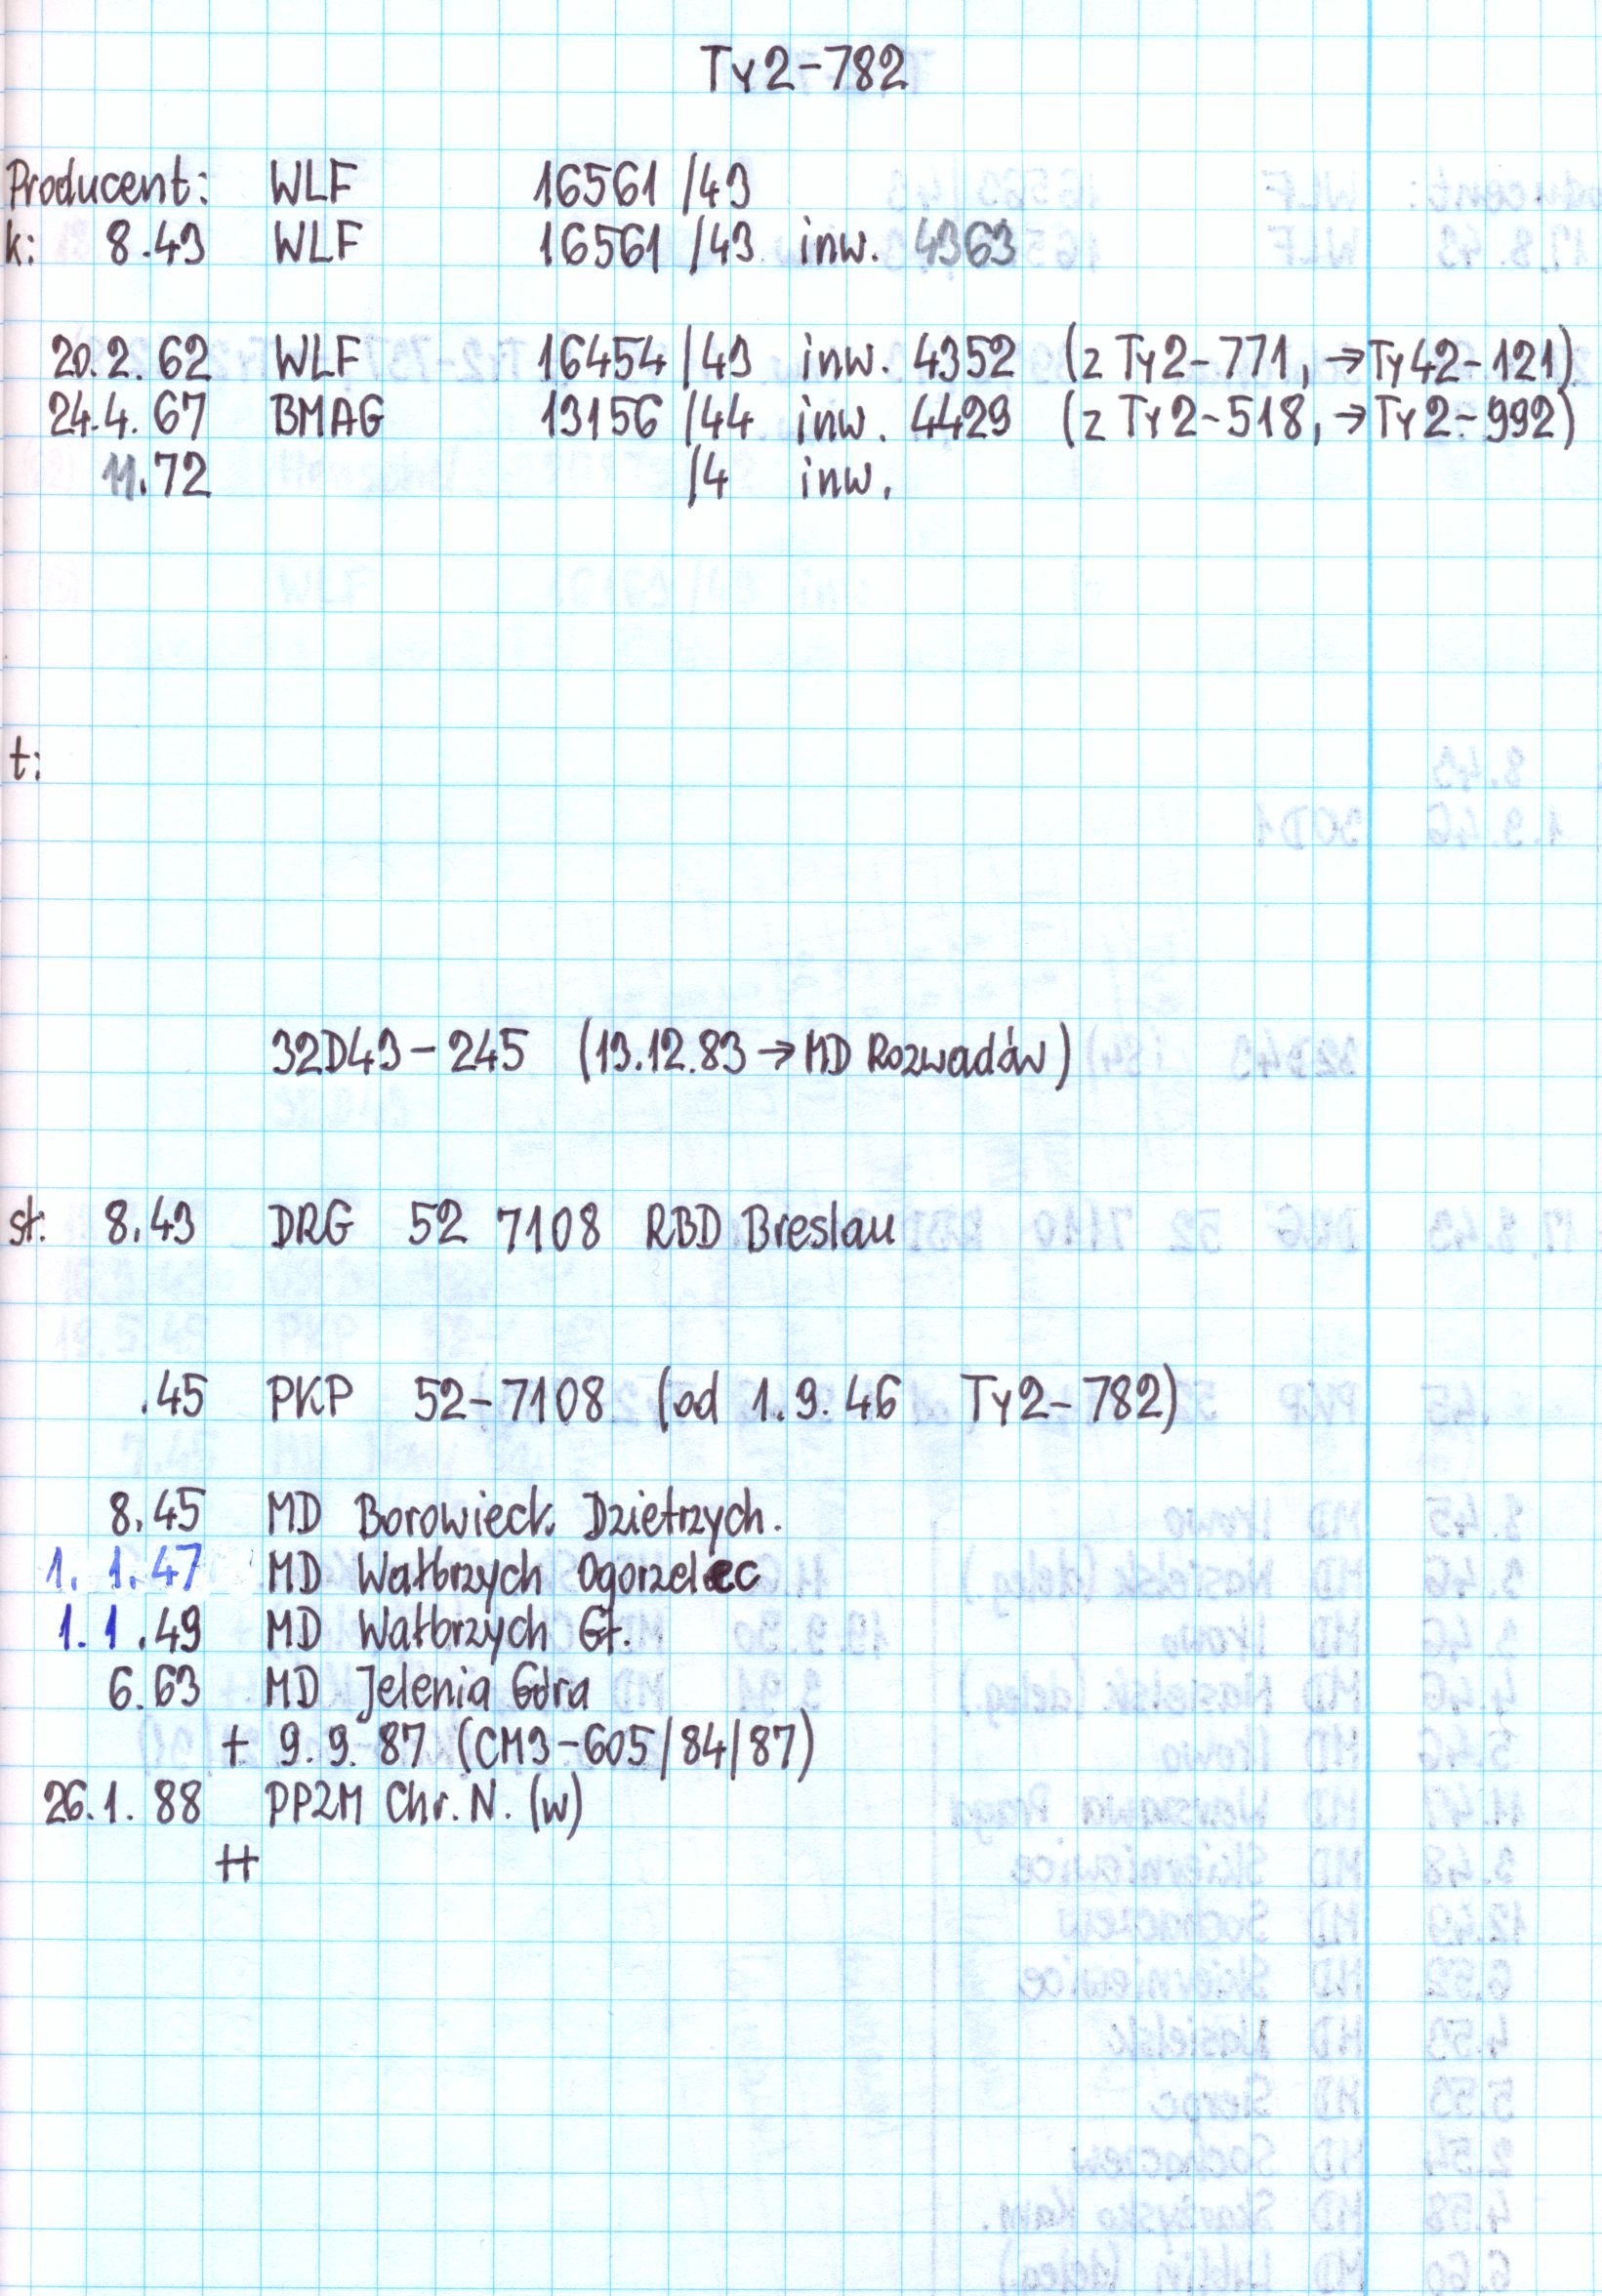 Ty2-782
Producent: WLF 16561 /43
k: 8.43 WLF 16561 /43 inw. 4363
20.2.62 WLF 16454 /43 inw. 4352 (z Ty2-771, →Ty42-121)
24.4.67 BMAG 13156 /44 inw. 4429 (z Ty2-518, →Ty2-992)
11.72 /4 inw.
t:
32D43-245 (13.12.83 → MD Rozwadów)
st: 8.43 DRG 52 7108 RBD Breslau
.45 PKP 52-7108 (od 1.9.46 Ty2-782)
8.45 MD Borowieck. Dzietrzych.
1.1.47 MD Wałbrzych Ogorzelec
1.1.49 MD Wałbrzych Gł.
6.63 MD Jelenia Góra
+ 9.9.87 (CM3-605/84/87)
26.1.88 PP2M Chr. N. (w)
++